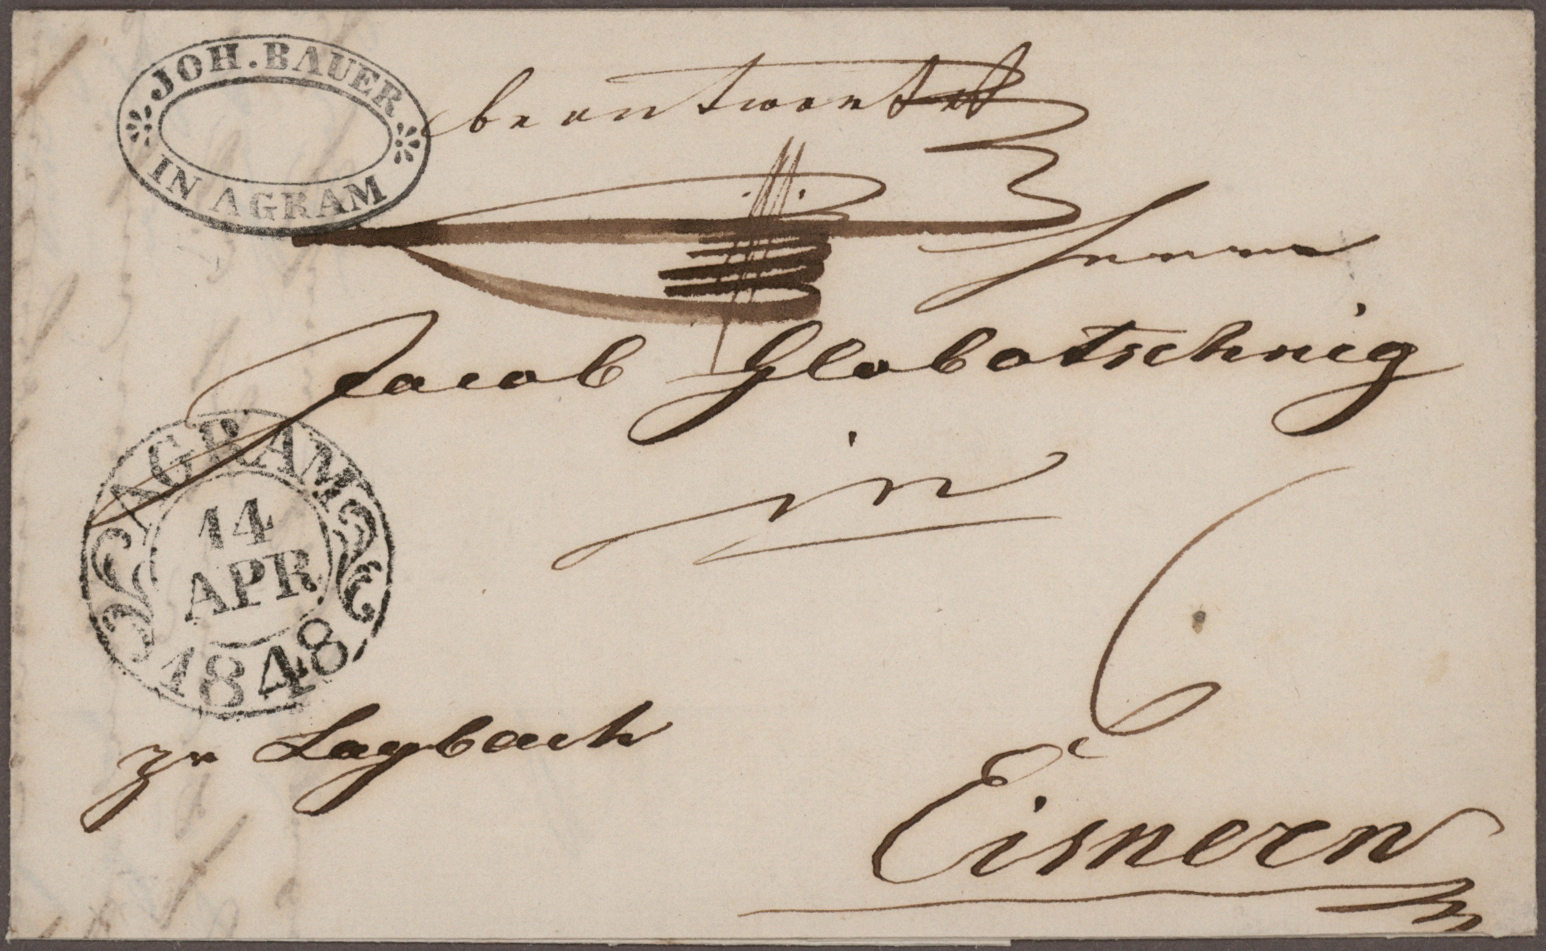 JOH. BAUER
IN AGRAM
beantwortet
Herrn
Jacob Globotschnig
in
AGRAM
14
APR
1848
6
zu Laybach
Eisnern